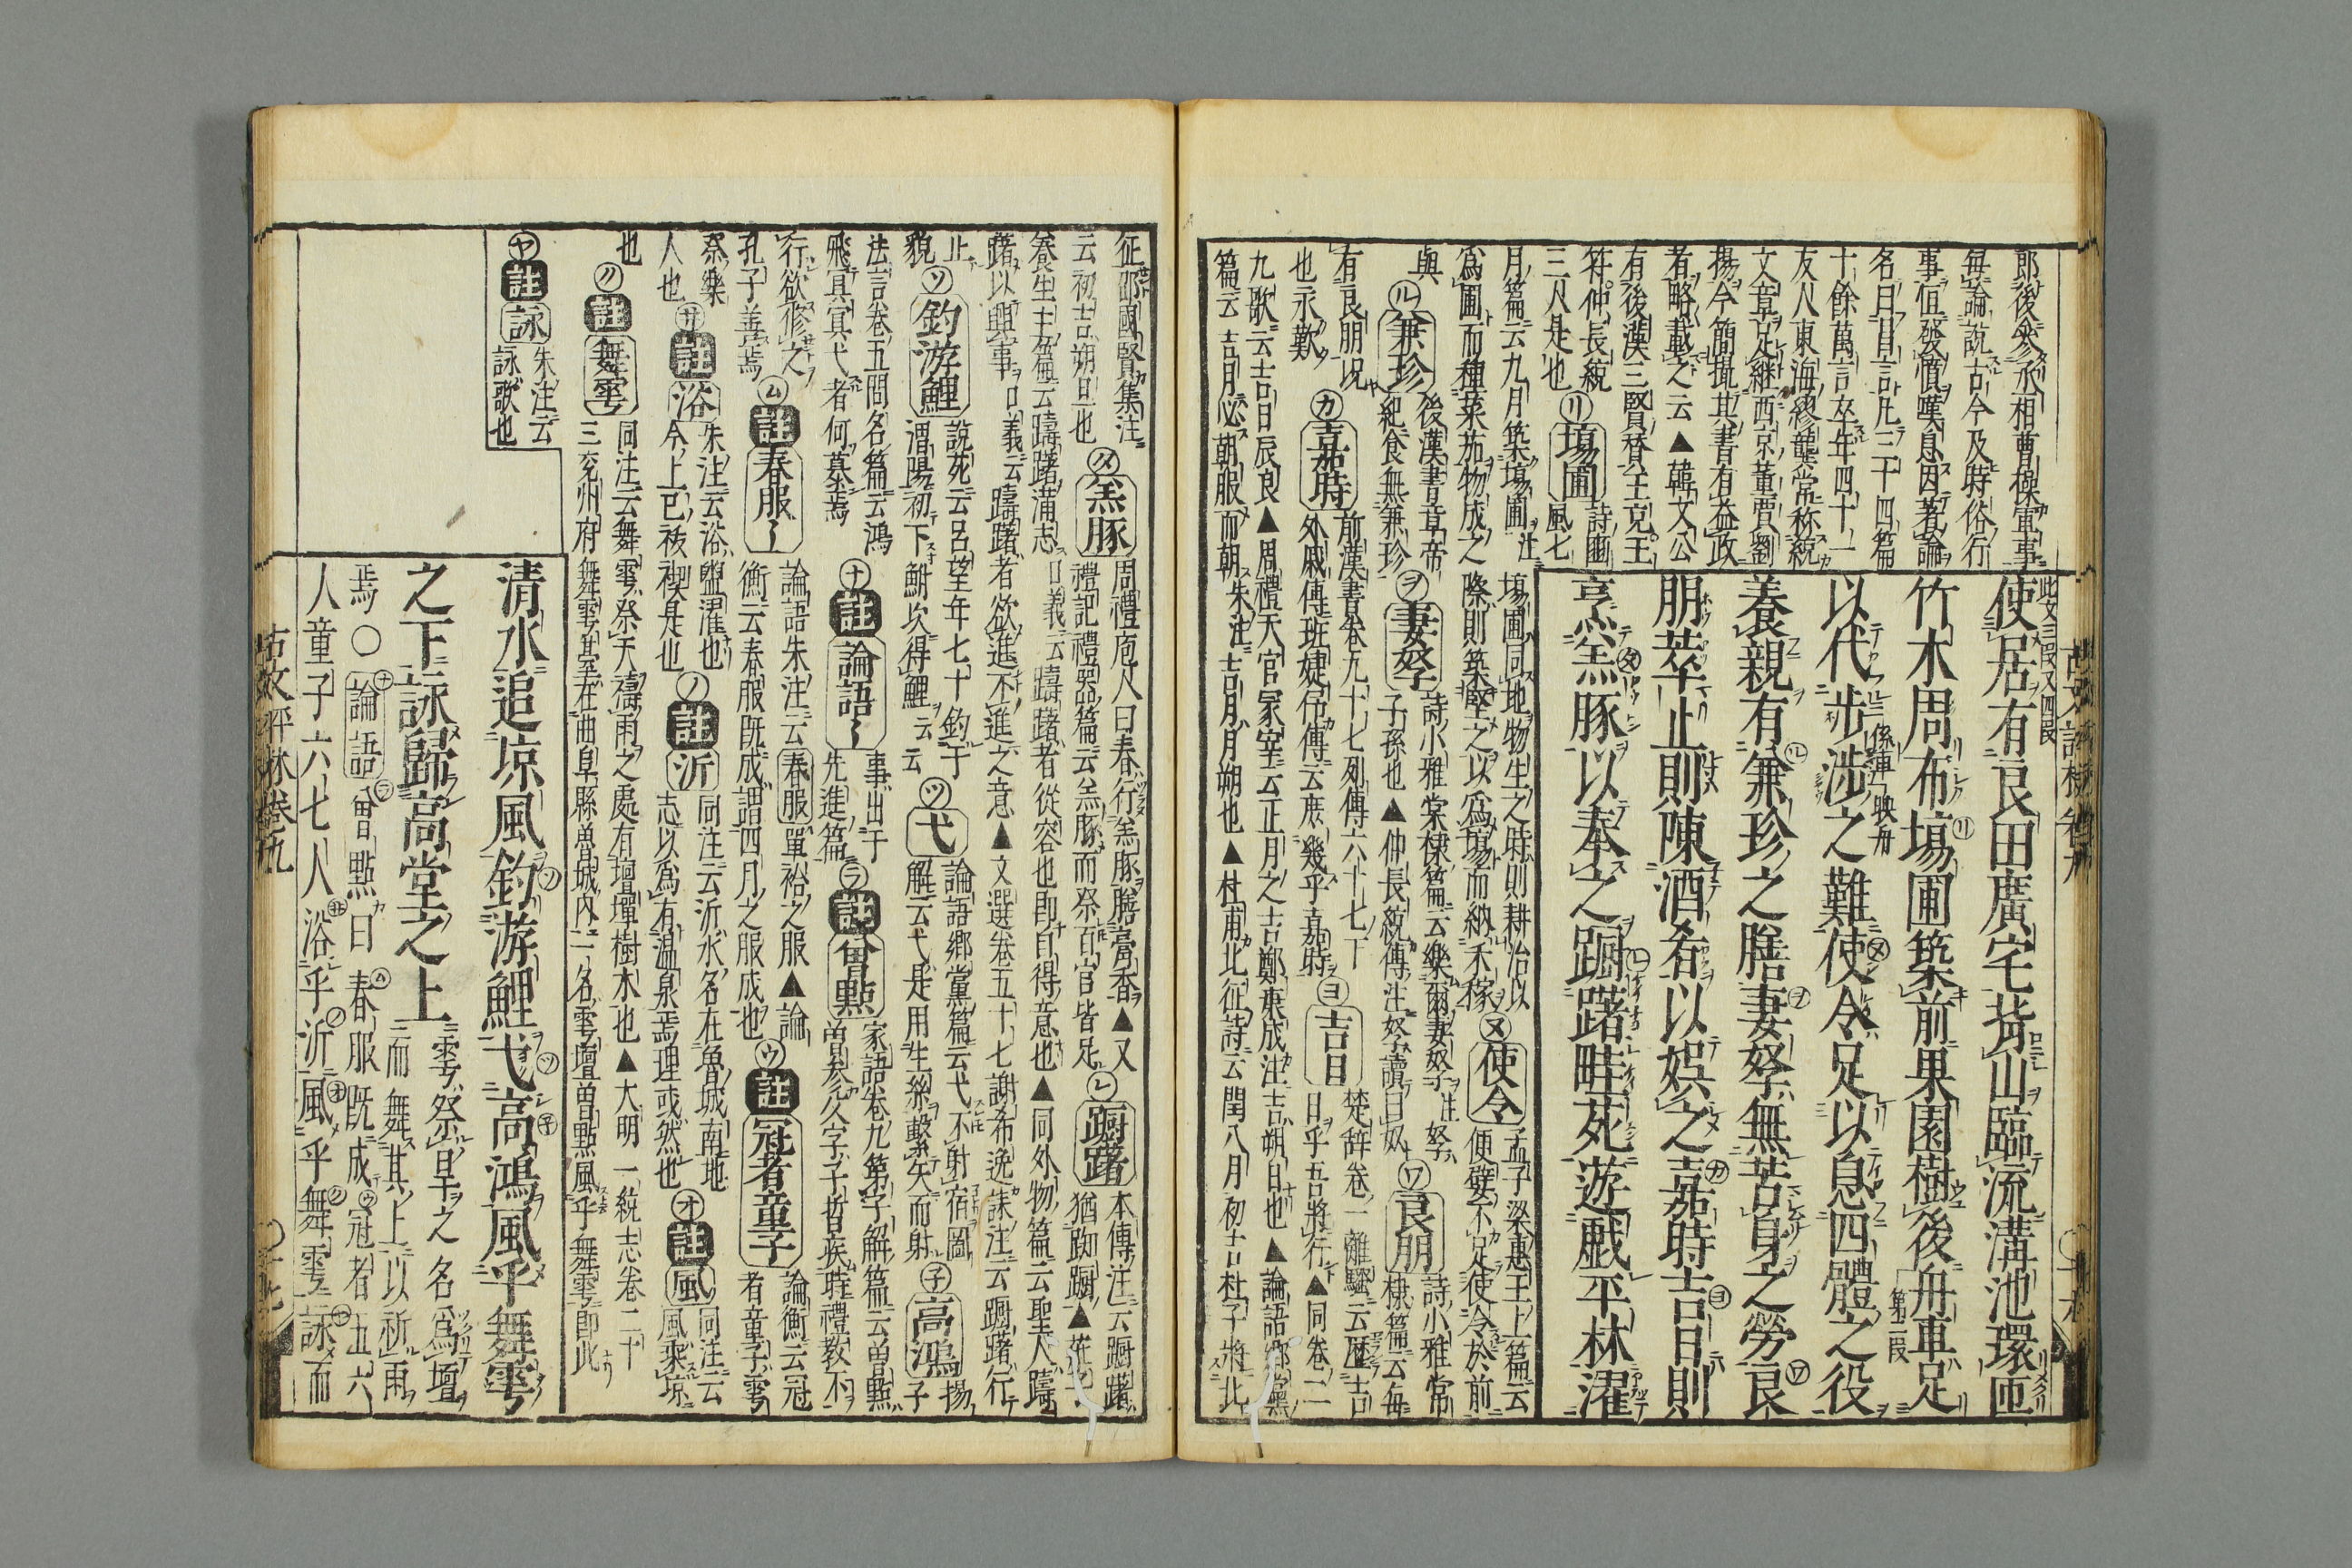 郎後參丞相曹操軍事
每論説古今及時俗行
事恒發憤嘆息因著論
名曰昌言凡三十四篇
十餘萬言卒年四十一
友人東海繆襲常称統
文章足継西京董賈劉
揚今簡撮其書有益政
者略載之云▲韓文公
有後漢三賢賛王充王
符仲長統
三人是也
㋷塲圃
詩豳
風七
月篇云九月築塲圃注
爲圃而種菜茄物成之
塲圃同地物生之時則耕治以
際則築堅之以爲塲而納禾稼
㋦使令
孟子梁惠王上篇云
便嬖不足使冷於前
與
㋸兼珍
後漢書章帝
紀食無兼珍
㋾妻孥
詩小雅棠棣篇云樂爾妻孥注孥
子孫也▲仲長統傳注孥讀曰奴
㋻良朋
詩小雅常
棣篇云每
有良朋况
也永歎
㋕嘉時
前漢書卷九十七列傳六十七下
外戚傳班婕伃傳云庶幾乎嘉時
㋵吉日
楚辞卷一離騷云歴吉
日乎吾將行▲同卷二
九歌云吉日辰良▲周禮天官冢宰云正月之吉鄭康成注吉朔日也▲論語鄉黨
篇云吉月必朝服而朝朱注吉月月朔也▲杜甫北征詩云閏八月初吉杜子將北
此文三段又四段
使居有良田廣宅背山臨流溝池環匝
竹木周布塲圃築前果園樹後舟車足
以代步涉之難使令足以息四體之役
係車映舟
第二段
養親有兼珍之膳妻孥無苦身之勞良
朋萃止則陳酒肴以娯之嘉時吉日則
烹羔豚以奉之躕躇畦苑遊戲平林濯
征邶國賢集注
云初吉朔旦也
㋟羔豚
周禮庖人曰春行羔豚膳膏香▲又
禮記禮器篇云羔豚而祭百官皆足
㋹躕躇
本傳注云躕躇
猶踟躕▲
養生主篇云躊躇滿志口義云躊躇者從容也即自得意也▲同外物篇云聖人躊
躇以興事口義云躊躇者欲進不進之意▲文選卷五十七謝希逸誄注云躕躇行
止
貌
㋡釣游鯉
說苑云呂望年七十釣于
渭陽初下鮒次得鯉云云
㋡弋
論語鄉黨篇云弋不射宿圖
解云弋是用生絲繫矢而射
㋙高鴻
揚
子
法言卷五問名篇云鴻
飛冥冥弋者何慕焉
㋤註論語〱
事出于
先進篇
㋶註曾點
家語卷九第子解篇云曽點
曽參父字子晳疾時禮教不
行欲修之
孔子善焉
㋰註春服〱
論語朱注云春服單袷之服▲論
衡云春服既成謂四月之服成也
㋒註冠者童子
論衡云冠
者童子雩
祭樂
人也
㋚註浴
朱注云浴盥濯也
今上巳祓禊是也
㋨註沂
同注云沂水名在魯城南地
志以爲有温泉焉理或然也
㋔註風
同注云
風乘凉
也
㋗註舞雩
同注云舞雩祭天禱雨之處有壇墠樹木也▲大明一統志卷二十
三兖州府舞雩基在曲阜縣魯城内二名雩壇曽點風乎舞雩即此
㋳註詠
朱注云
詠歌也
清水追凉風釣游鯉弋高鴻風乎舞雩
之下詠歸高堂之上
雩祭旱之名爲壇
而舞其上以祈雨
焉〇論語曾點曰春服既成冠者五六
人童子六七人浴乎沂風乎舞雩詠而
古文評林卷九